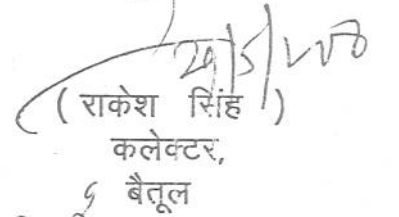 ( राकेश सिंह )
कलेक्टर,
बैतूल